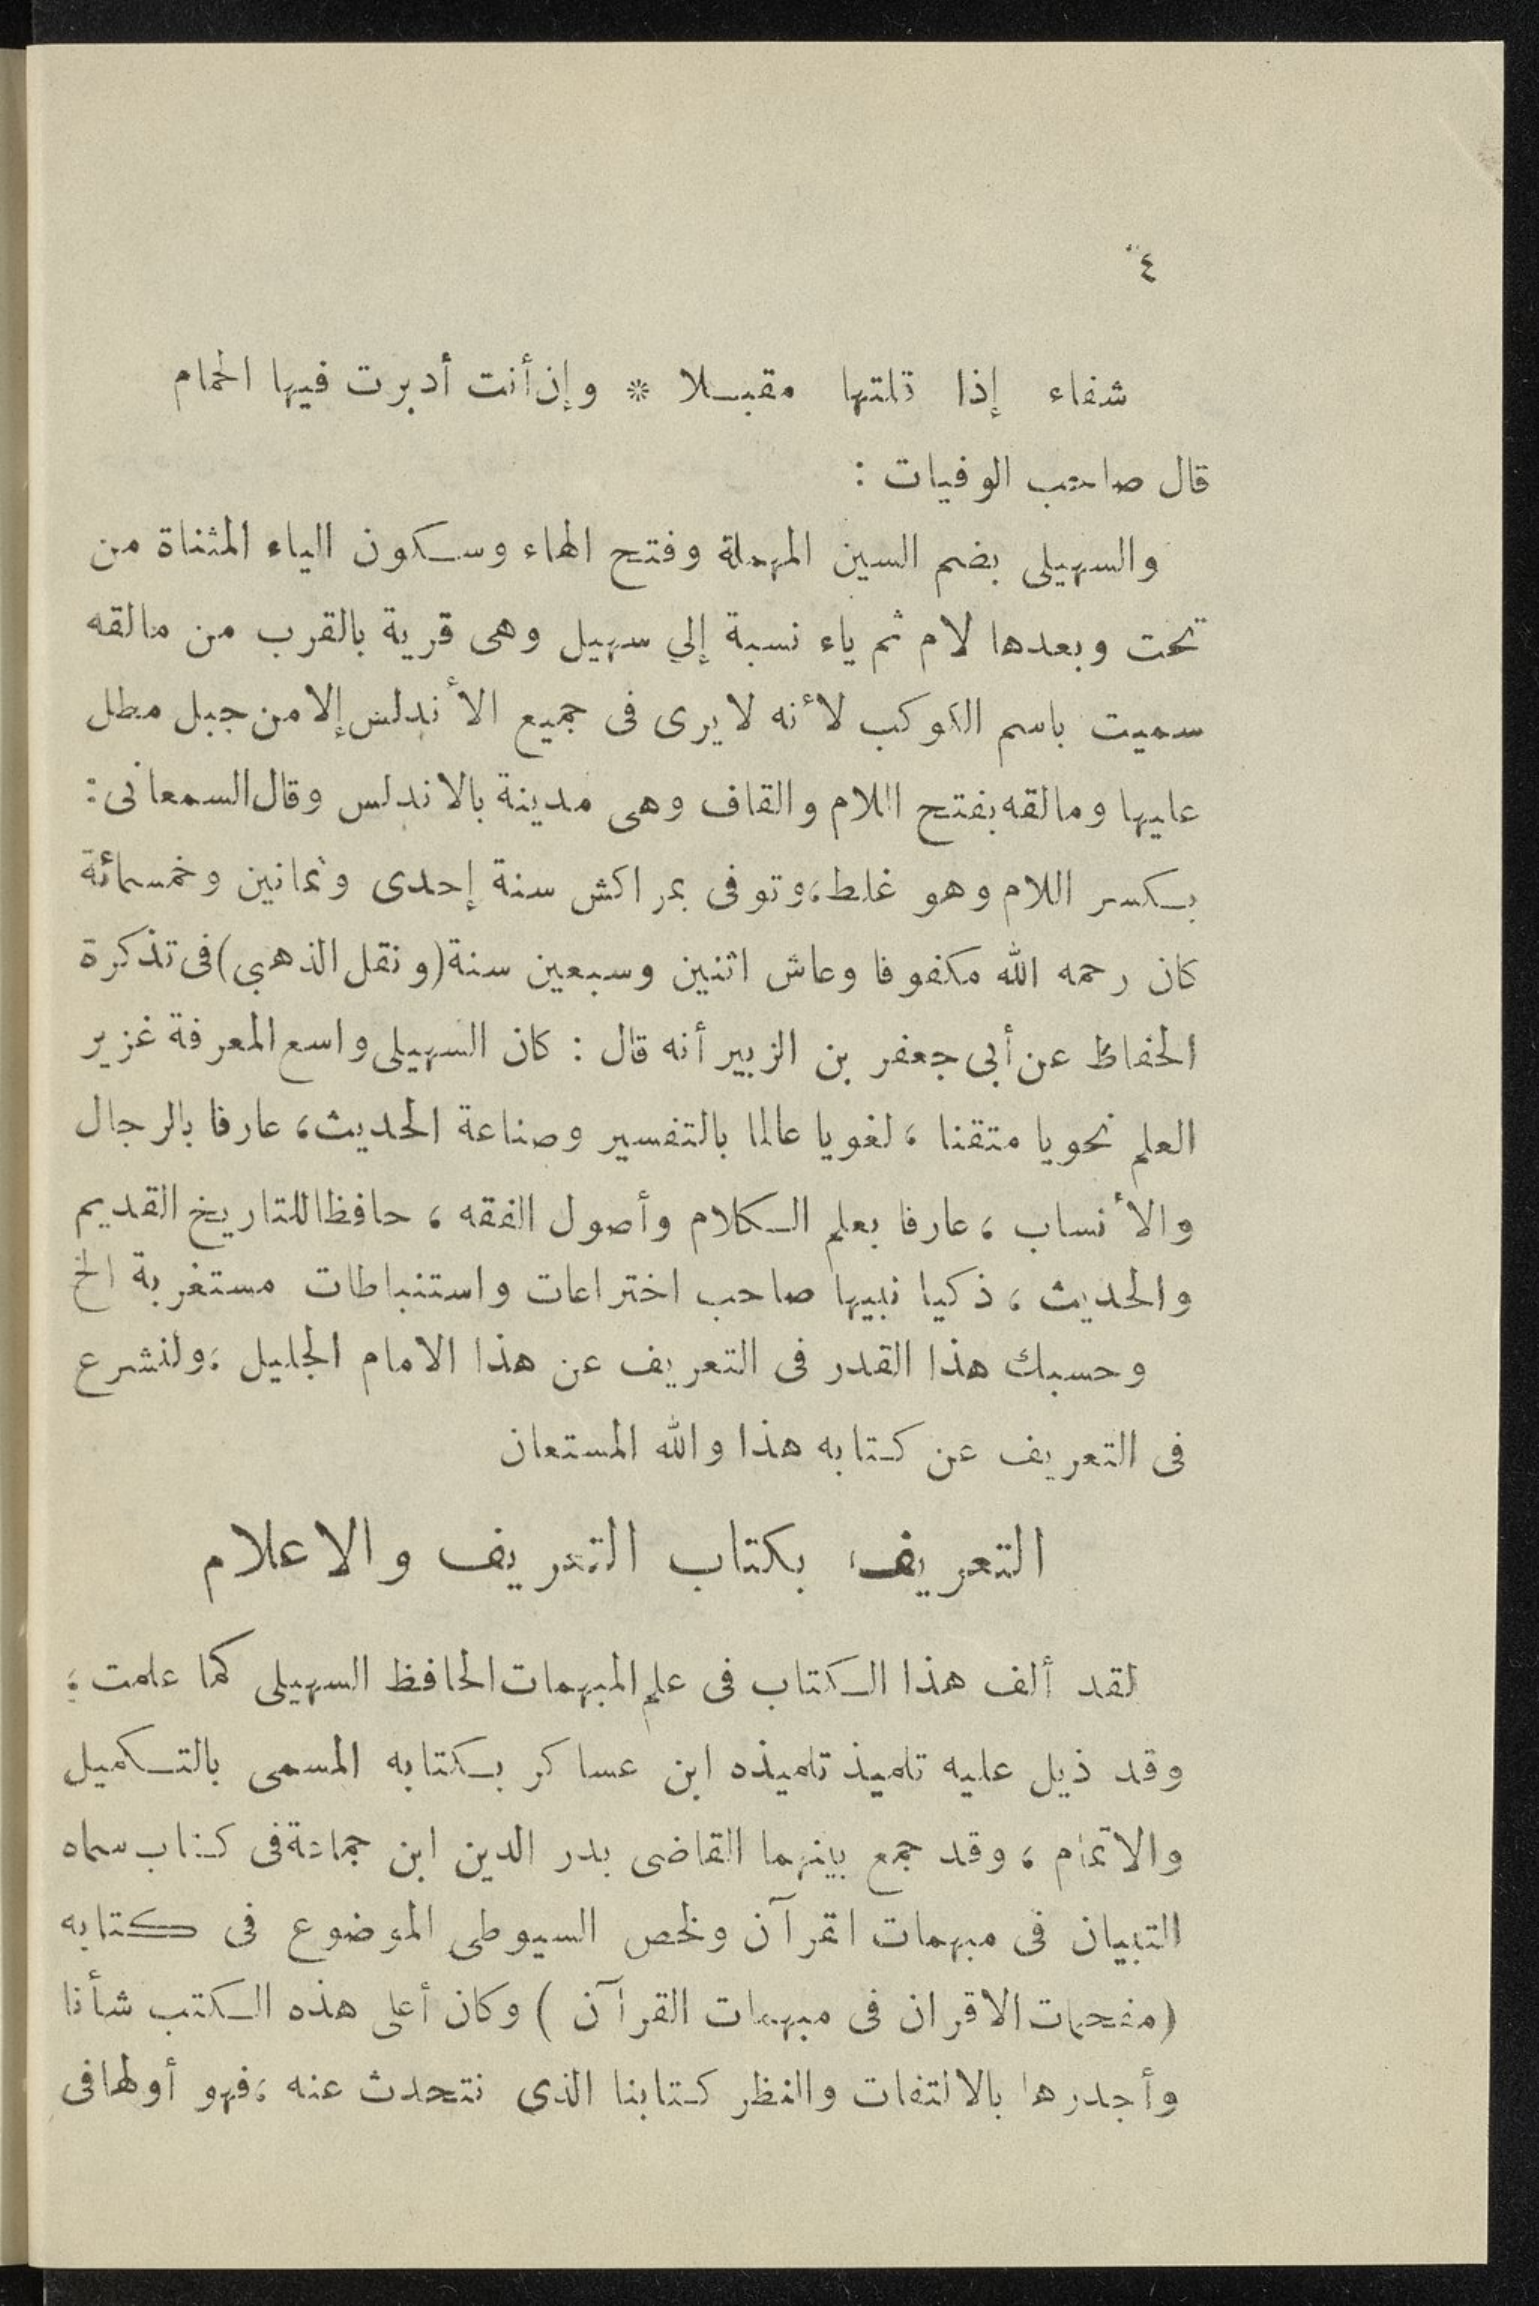 ٤
شفاء إذا نلتها مقبلا * وإن أنت أدبرت فيها الحمام
قال صاحب الوفيات :
والسهيلى بضم السين المهملة وفتح الهاء وسكون الياء المثناة من
تحت وبعدها لام ثم ياء نسبة إلي سهيل وهى قرية بالقرب من مالقه
سميت باسم الكوكب لأنه لا يرى فى جميع الأندلس إلا من جبل مطل
عليها ومالقه بفتح اللام والقاف وهى مدينة بالاندلس وقال السمعانى :
بكسر اللام وهو غلط ، وتوفى بمراكش سنة إحدى وثمانين وخمسمائة
كان رحمه الله مكفوفا وعاش اثنين وسبعين سنة (ونقل الذهبي) فى تذكرة
الحفاظ عن أبى جعفر بن الزبير أنه قال : كان السهيلى واسع المعرفة غزير
العلم نحويا متقنا ، لغويا عالما بالتفسير وصناعة الحديث ، عارفا بالرجال
والأنساب ، عارفا بعلم الكلام وأصول الفقه ، حافظا للتاريخ القديم
والحديث ، ذكيا نبيها صاحب اختراعات واستنباطات مستغربة الخ
وحسبك هذا القدر فى التعريف عن هذا الامام الجليل ، ولنشرع
فى التعريف عن كتابه هذا والله المستعان
التعريف بكتاب التعريف والاعلام
لقد ألف هذا الكتاب فى علم المبهمات الحافظ السهيلى كما علمت ؛
وقد ذيل عليه تلميذ تلميذه ابن عساكر بكتابه المسمى بالتكميل
والاتمام ، وقد جمع بينهما القاضى بدر الدين ابن جماعة فى كتاب سماه
التبيان فى مبهمات القرآن ولخص السيوطى الموضوع فى كتابه
(مفحمات الاقران فى مبهمات القرآن ) وكان أعلى هذه الكتب شأنا
وأجدرها بالالتفات والنظر كتابنا الذى نتحدث عنه ، فهو أولها فى